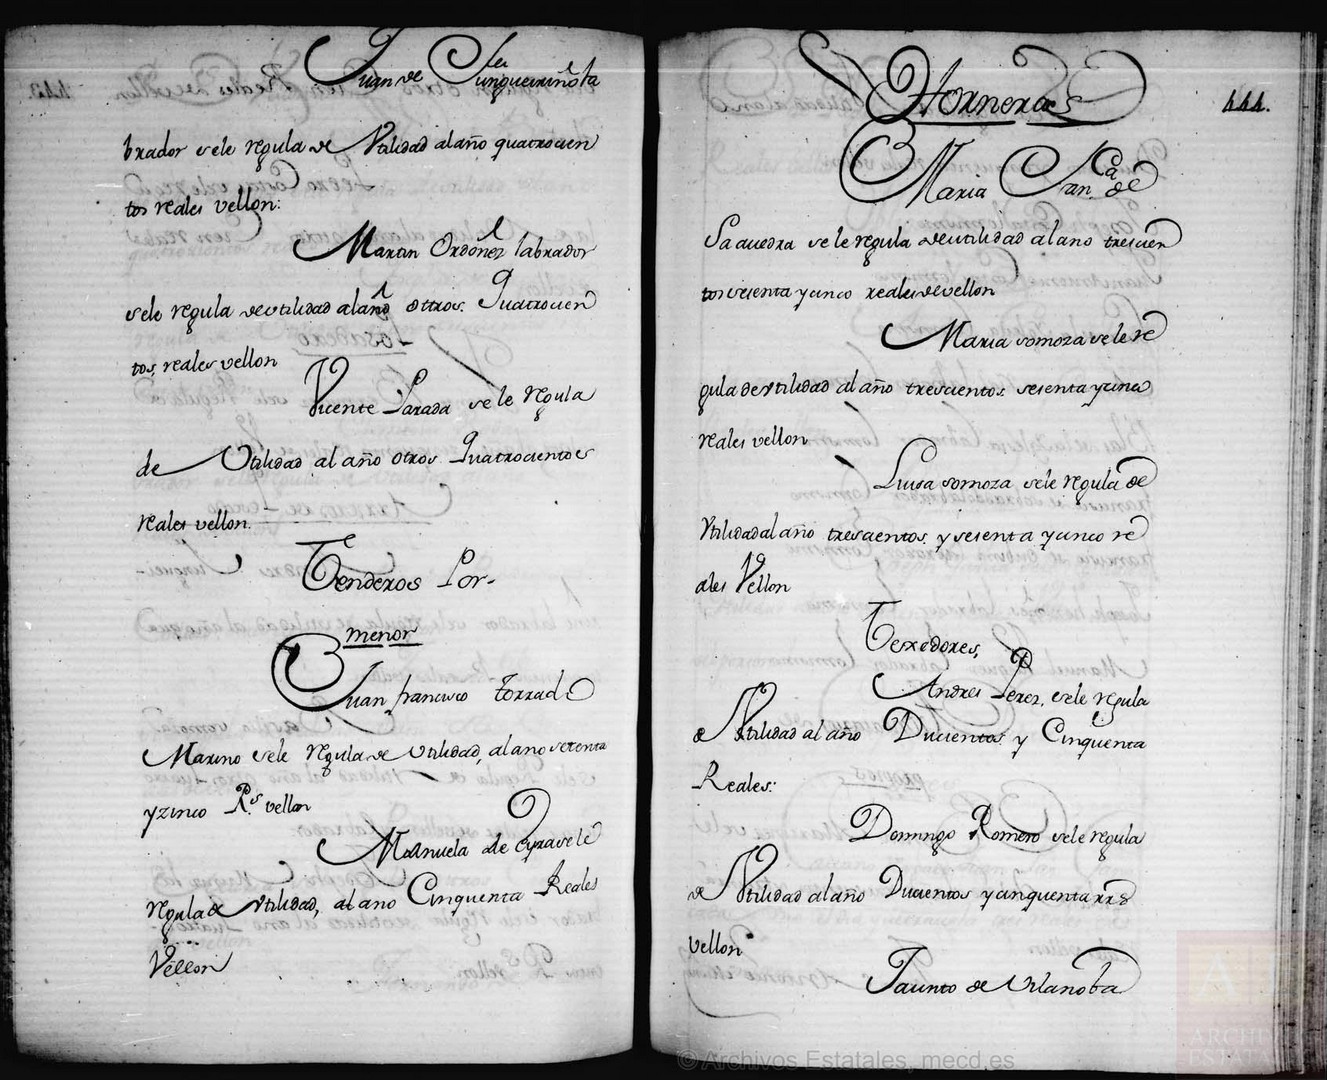 Juan de Junqueiriño la
brador sele regula de Vtilidad al año quatrocien
tos reales vellon:
Martin Ordoñez labrador
sele regula deutilidad al año ottros. Quatrocien
tos, reales vellon
Vicente Parada se le regula
de Vtilidad al año otros Quatrocientos
reales vellon.
Tenderos Por-
menor
Juan francisco torrade
Marino sele regula de Vtilidad, al ano setenta
y zinco Rs. vellon
Manuela de Eyra sele
regula de Vtilidad, al año Cinquenta Reales
Vellon
Horneras
444.
Maria San de
Saauedra se le regula deutilidad al año trescien
tos sesenta y cinco reales de vellon
Maria somoza se le re
gula de vtilidad al año trescientos sesenta y cinco
reales vellon
Luisa somoza sele regula de
Vtilidad al año trescientos y sesenta y cinco re
ales Vellon
Texedores
Andres Perez, sele regula
de Vtilidad al año Ducientos y Cinquenta
Reales:
Domingo Romero sele regula
de Vtilidad al año Ducientos y cinquenta rrs
vellon
Jacinto de Vilanoba
© Archivos Estatales, mecd.es